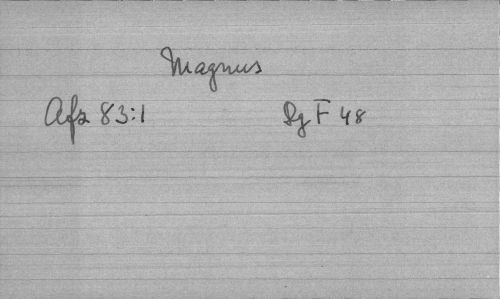 Magnus
Afz 83:1 Sg F 48